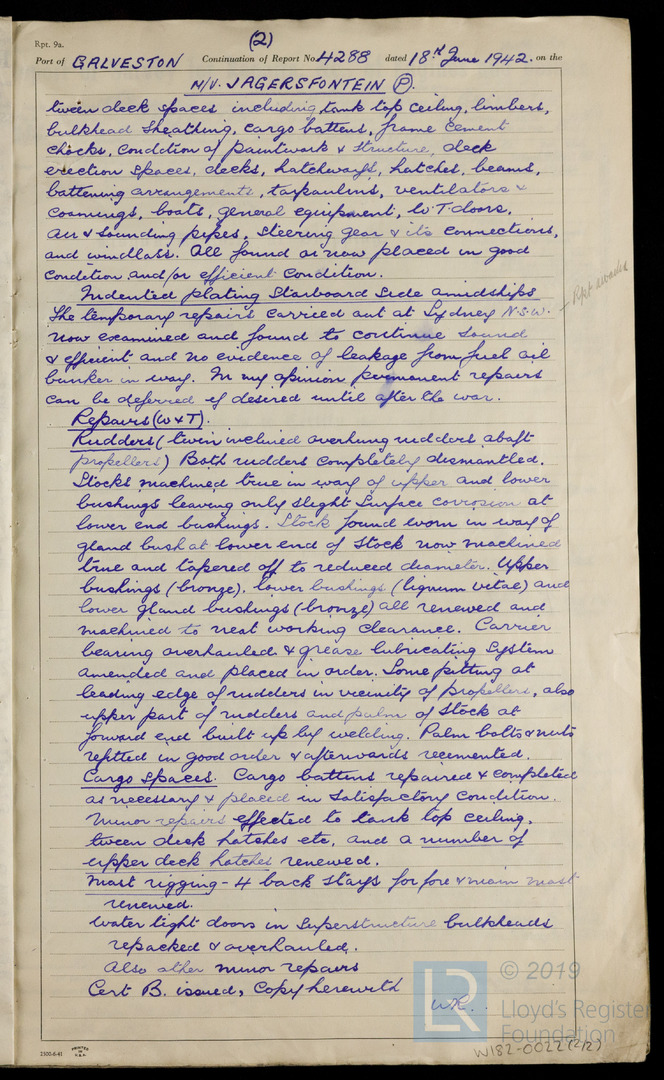 (2)
Rpt. 9a.
Port of GALVESTON Continuation of Report No. 4288 dated 18th June 1942. on the
M/V. JAGERSFONTEIN (P).
tween deck spaces including tank top ceiling, limbers,
bulkhead sheathing, cargo battens, frame cement
chocks, condition of paintwork & structure, deck
erection spaces, decks, hatchways, hatches, beams,
battening arrangements, tarpaulins, ventilators &
coamings, boats, general equipment, W.T doors,
air & sounding pipes, steering gear & its connections,
and windlass. All found or now placed in good
condition and/or efficient condition.
Indented plating Starboard Side amidships
The temporary repairs carried out at Sydney N.S.W.
now examined and found to continue sound
& efficient and no evidence of leakage from fuel oil
bunker in way. In my opinion permanent repairs
can be deferred if desired until after the war.
Repairs (W & T).
Rudders (twin inclined overhung rudders abaft
propellers) Both rudders completely dismantled.
Stocks machined true in way of upper and lower
bushings leaving only slight surface corrosion at
lower end bushings. Stock found worn in way of
gland bush at lower end of stock now machined
true and tapered off to reduced diameter. Upper
bushings (bronze), lower bushings (lignum vitae) and
lower gland bushings (bronze) all renewed and
machined to neat working clearance. Carrier
bearing overhauled & grease lubricating system
amended and placed in order. Some pitting at
leading edge of rudders in vicinity of propellers, also
upper part of rudders and palm of stock at
forward end built up by welding. Palm bolts & nuts
refitted in good order & afterwards recemented.
Cargo spaces. Cargo battens repaired & completed
as necessary & placed in satisfactory condition.
Minor repairs effected to tank top ceiling,
tween deck hatches etc, and a number of
upper deck hatches renewed.
Mast rigging - 4 back stays for fore & main mast
renewed.
Water tight doors in superstructure bulkheads
repacked & overhauled.
Also other minor repairs
Cert B. issued, Copy herewith
© 2019
LR
Lloyd's Register
Foundation
W182-0022 (2/2)
2500-6-41
PRINTED IN U.S.A.